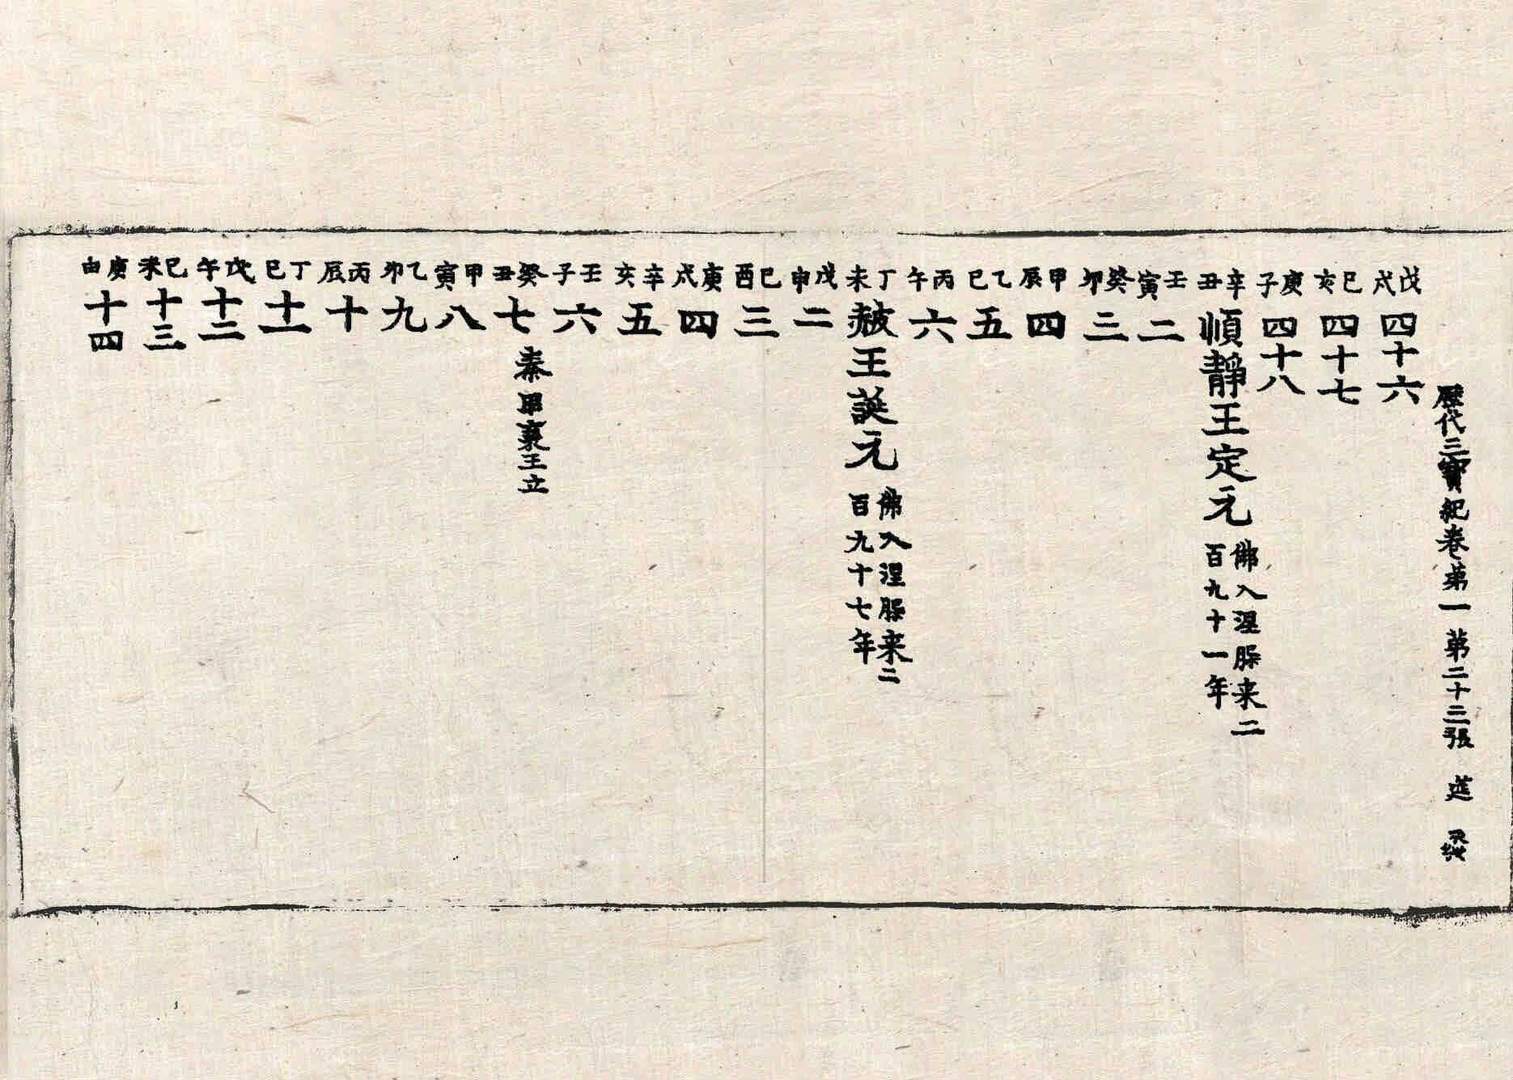 歷代三寶紀卷第一 第二十三張 莚
戊戌 四十六
己亥 四十七
庚子 四十八
辛丑 慎靜王定元 佛入涅槃来二百九十一年
壬寅 二
癸卯 三
甲辰 四
乙巳 五
丙午 六
丁未 赧王誕元 佛入涅槃来二百九十七年
戊申 二
己酉 三
庚戌 四
辛亥 五
壬子 六
癸丑 七 秦昭襄王立
甲寅 八
乙卯 九
丙辰 十
丁巳 十一
戊午 十二
己未 十三
庚申 十四